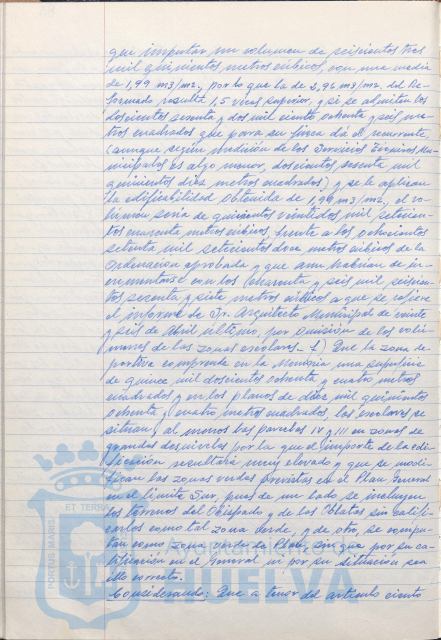 que importan un volumen de seiscientos tres
mil quinientos metros cúbicos, con una media
de 1,99 m3/m2, por lo que la de 2,96 m3/m2, del Re-
formado resulta 1,5 veces superior, y si se admiten los
doscientos sesenta y dos mil ciento ochenta y seis me-
tros cuadrados que para su finca dá el recurrente
(aunque según medición de los Servicios Técnicos Mu-
nicipales es algo menor, doscientos sesenta mil
quinientos diez metros cuadrados) y se le aplican
la edificabilidad obtenida de 1,99 m3/m2, el vo-
lúmen sería de quinientos veintidos mil, setecien-
tos cuarenta metros cúbicos, frente a los ochocientos
setenta mil setecientos doce metros cúbicos de la
Ordenación aprobada y que aun habrían de in-
crementarse con los cuarenta y seis mil seiscien-
tos sesenta y siete metros cúbicos a que se refiere
el informe de Sr. Arquitecto Municipal de veinte
y seis de Abril último, por omisión de los volú-
menes de las zonas escolares.- f) Que la zona de-
portiva comprende en la Memoria una superficie
de quince mil doscientos ochenta y cuatro metros
cuadrados y en los planos de diez mil quinientos
ochenta y cuatro metros cuadrados, las escolares se
situan, al menos las parcelas IV y III en zonas de
grandes desniveles por la que el importe de la edi-
ficación resultará muy elevado y que se modi-
fican las zonas verdes previstas en el Plan General
en el límite Sur, pues de un lado se incluyen
los terrenos del Obispado y de los Oblatos sin calificar-
los como tal zona verde, y de otro, se compu-
tan como zona verde de Plan, sin que por su ca-
lificación en el General ni por su situación sea
ello correcto.
Considerando: Que a tenor del artículo ciento
PORTUS MARIS ET TERRAE
Ayuntamiento de
HUELVA